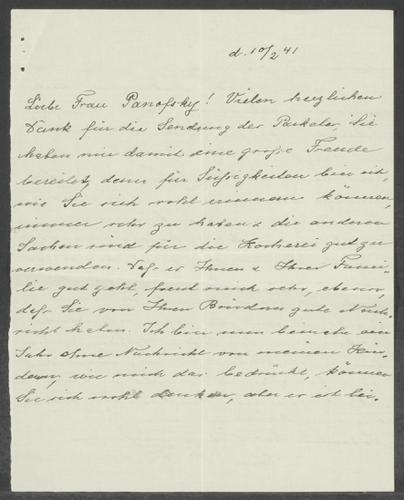 d. 10/2 41
Liebe Frau Panofsky! Vielen herzlichen
Dank für die Sendung der Pakete, Sie
haben mir damit eine große Freude
bereitet, denn für Süßigkeiten bin ich,
wie Sie sich wohl erinnern können,
immer sehr zu haben & die anderen
Sachen sind für die Kocherei gut zu
verwenden. Daß es Ihnen & Ihrer Fami-
lie gut geht, freut mich sehr, ebenso,
daß Sie von Ihren Brüdern gute Nach-
richt haben. Ich bin nun beinahe ein
Jahr ohne Nachricht von meinen Kin-
dern, wie mich das bedrückt, können
Sie sich wohl denken, aber es ist bei